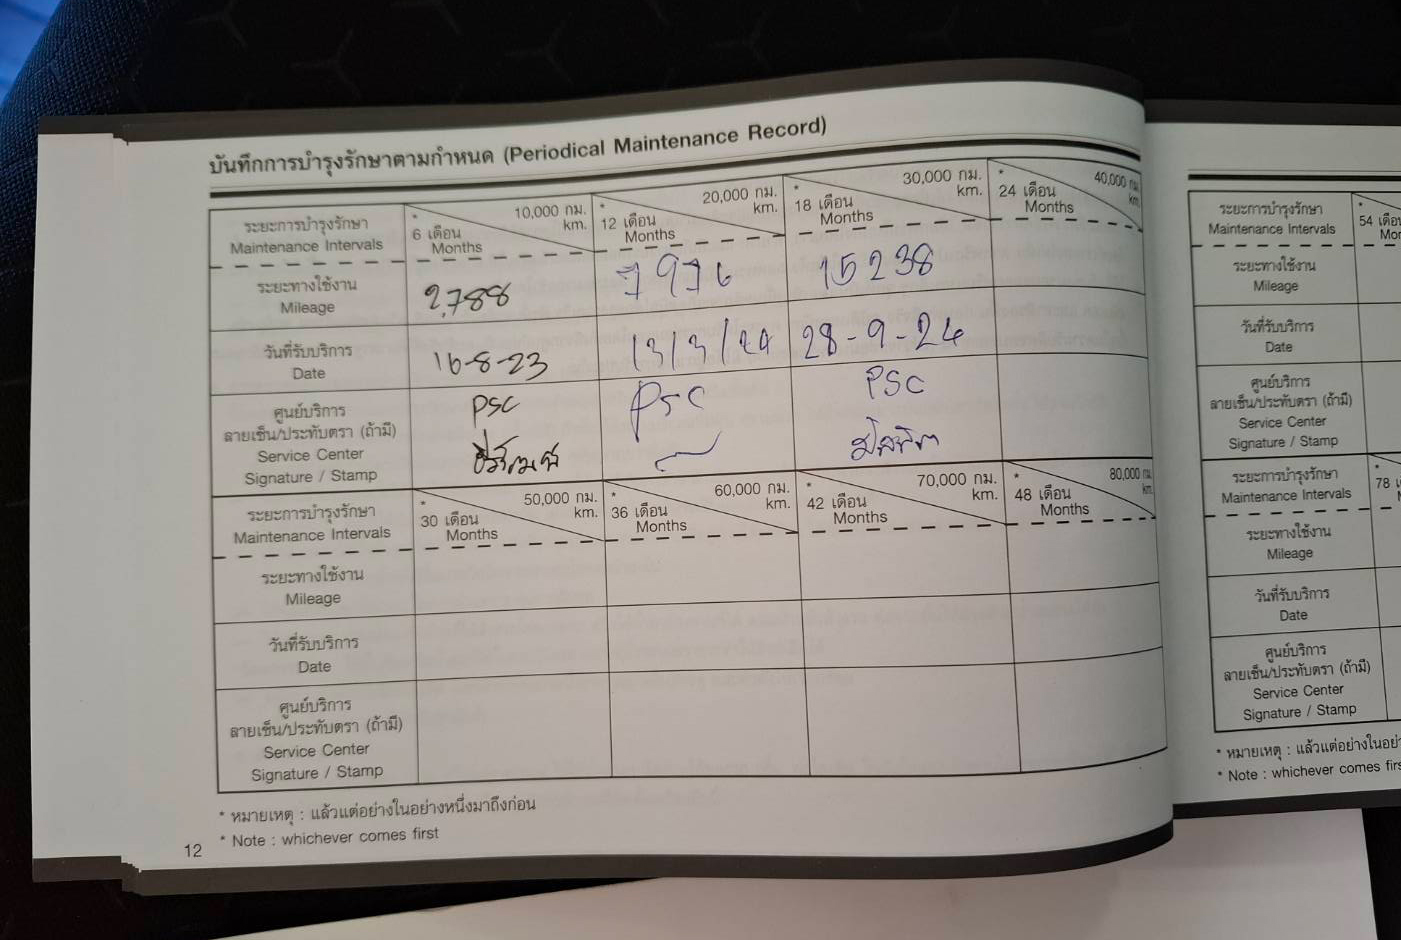 บันทึกการบำรุงรักษาตามกำหนด (Periodical Maintenance Record)
ระยะการบำรุงรักษา
Maintenance Intervals
* 6 เดือน Months 10,000 กม. km.
* 12 เดือน Months 20,000 กม. km.
* 18 เดือน Months 30,000 กม. km.
* 24 เดือน Months 40,000 กม. km.
ระยะทางใช้งาน
Mileage
2,788 7976 15238
วันที่รับบริการ
Date
16-8-23 13/3/24 28-9-24
ศูนย์บริการ
ลายเซ็น/ประทับตรา (ถ้ามี)
Service Center
Signature / Stamp
PSC PSC PSC
ระยะการบำรุงรักษา
Maintenance Intervals
* 30 เดือน Months 50,000 กม. km.
* 36 เดือน Months 60,000 กม. km.
* 42 เดือน Months 70,000 กม. km.
* 48 เดือน Months 80,000 กม. km.
ระยะทางใช้งาน
Mileage
วันที่รับบริการ
Date
ศูนย์บริการ
ลายเซ็น/ประทับตรา (ถ้ามี)
Service Center
Signature / Stamp
* หมายเหตุ : แล้วแต่อย่างใดอย่างหนึ่งมาถึงก่อน
* Note : whichever comes first
12
ระยะการบำรุงรักษา
Maintenance Intervals
* 54
ระยะทางใช้งาน
Mileage
วันที่รับบริการ
Date
ศูนย์บริการ
ลายเซ็น/ประทับตรา (ถ้ามี)
Service Center
Signature / Stamp
ระยะการบำรุงรักษา
Maintenance Intervals
* 78
ระยะทางใช้งาน
Mileage
วันที่รับบริการ
Date
ศูนย์บริการ
ลายเซ็น/ประทับตรา (ถ้ามี)
Service Center
Signature / Stamp
* หมายเหตุ :
* Note : whichever comes